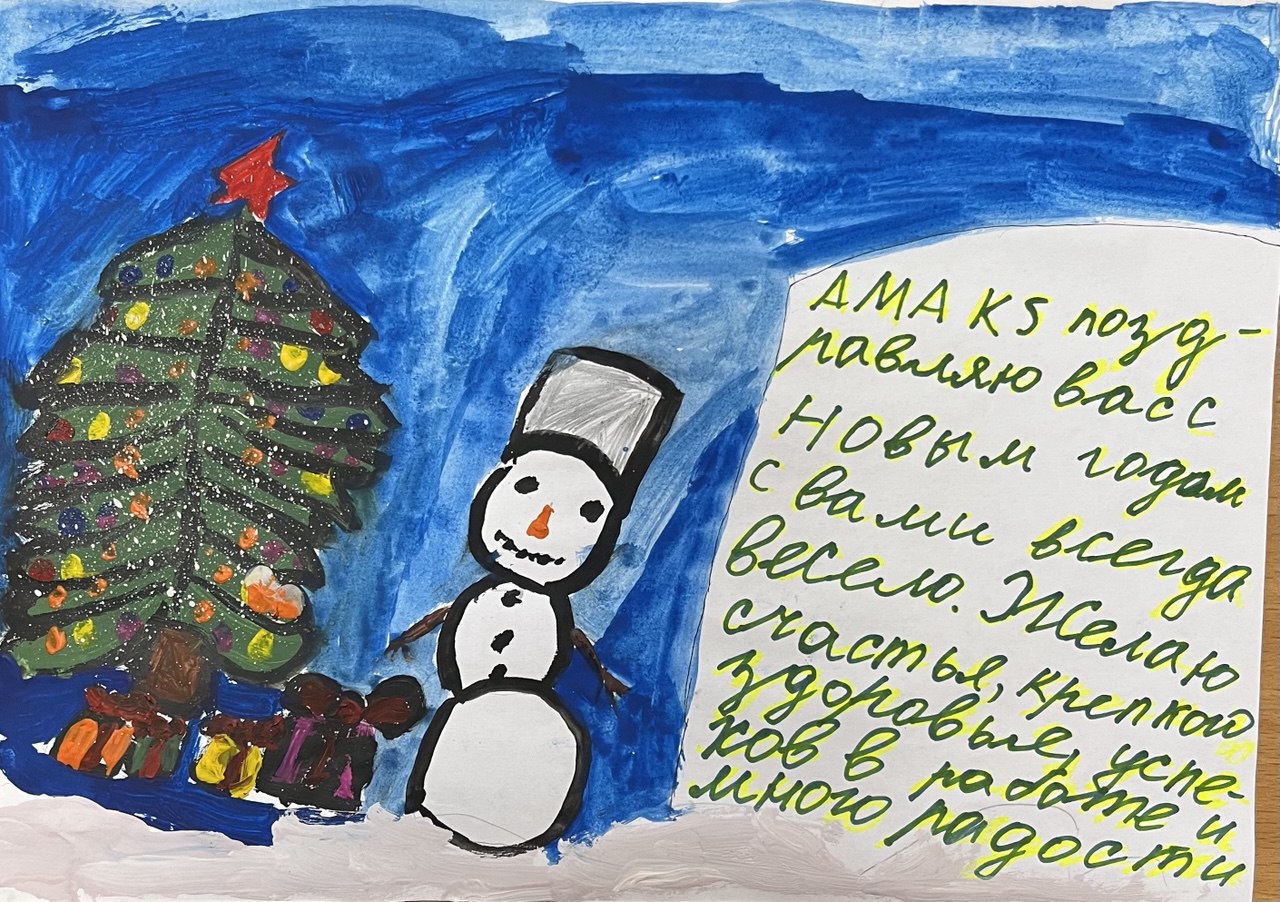 AMAKS позд-
равляю вас с
Новым годом
с вами всегда
весело. Желаю
счастья, крепкого
здоровья, успе-
хов в работе и
много радости